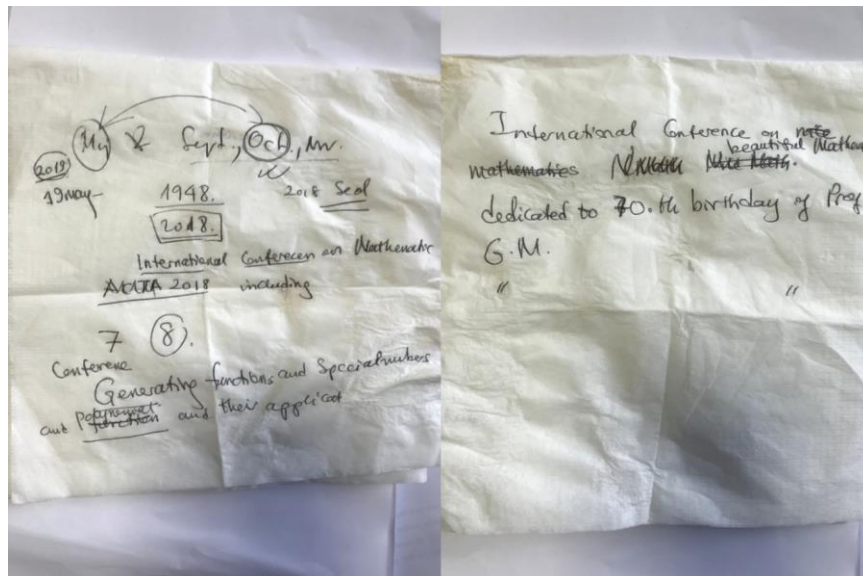 My & Sept., Oct, Nov.
2018
19 May
1948. 2018 Seol
2018.
International Conferecen on Mathematic
2018 including
7 8.
Conference
Generating functions and Special numbers
and function and their applicat
International Conference on
beautiful Mathem
mathematics
dedicated to 70.th birthday of Prof
G.M.
" "